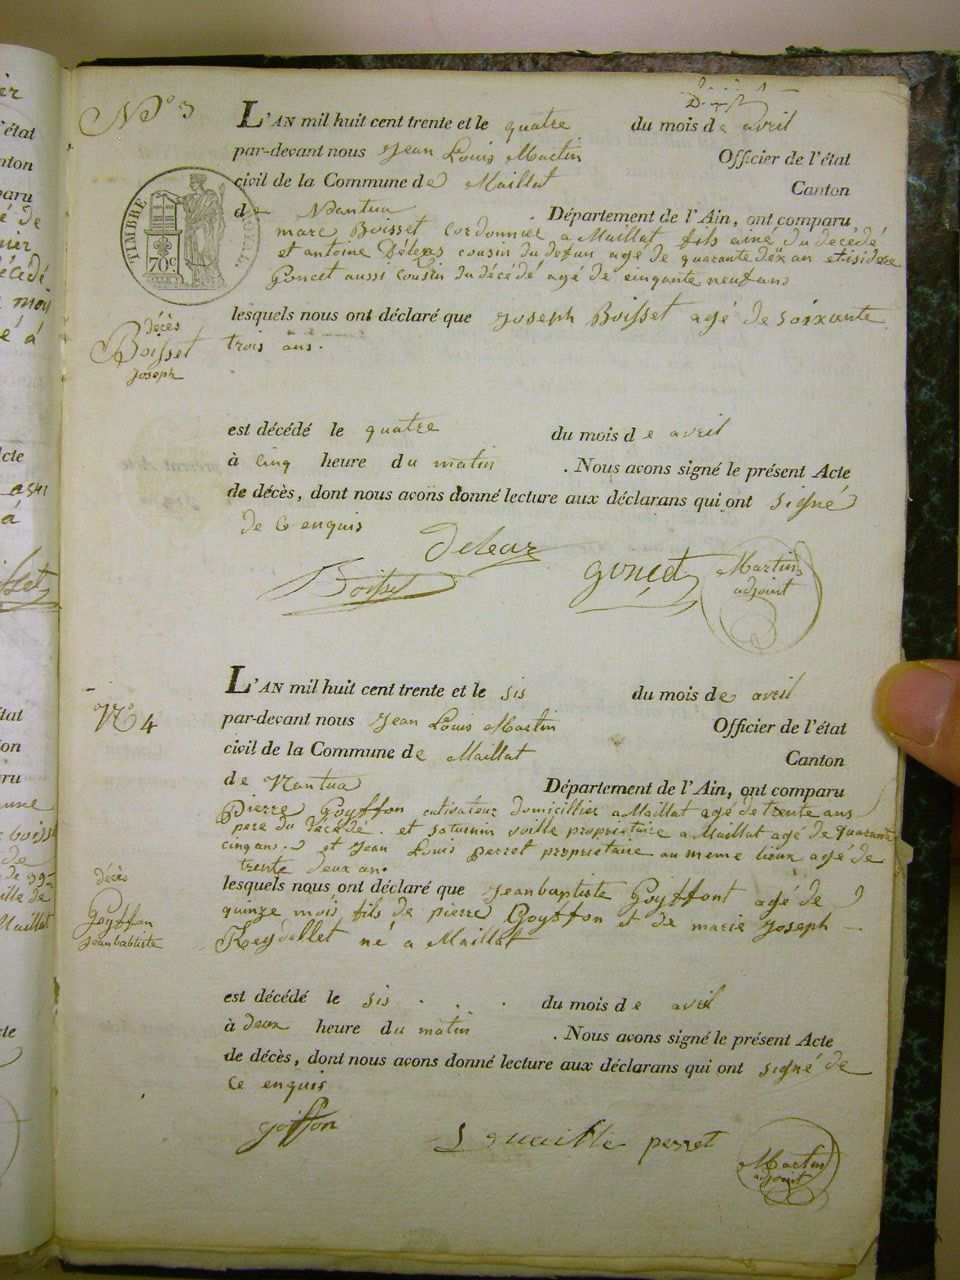 N° 3
L'AN mil huit cent trente et le quatre du mois de avril
par-devant nous Jean Louis Martin Officier de l'état
civil de la Commune de Maillat Canton
d Nantua Département de l'Ain, ont comparu
marc Boisset Cordonnier a Maillat fils ainé du décédé
et antoine cousin du defun agé de quarante dix an et isidore
Goncet aussi cousin du décédé agé de cinquante neuf ans
TIMBRE ROYAL
70C
lesquels nous ont déclaré que Joseph Boisset agé de soixante
trois ans.
décès
Boisset
Joseph
est décédé le quatre du mois de avril
à cinq heure du matin . Nous avons signé le présent Acte
de décès, dont nous avons donné lecture aux déclarans qui ont signé
de Ce enquis
deleaz
Boisset goncet Martin
adjoint
N° 4
L'AN mil huit cent trente et le sis du mois de avril
par-devant nous Jean Louis Martin Officier de l'état
civil de la Commune de Maillat Canton
de Nantua Département de l'Ain, ont comparu
Pierre Goyffon cutivateur domicillier a Maillat agé de trente ans
pere du décédé. et saturnin voille proprietaire a Maillat agé de quarante
cinq ans. et Jean Louis perret proprietaire au meme lieux agé de
trente deux an.
lesquels nous ont déclaré que Jeanbaptiste Goyffont agé de
quinze mois fils de pierre Goyffon et de marie Joseph
Reydellet né a Maillat
décès
Goyffon
Jeanbabtiste
est décédé le sis . . . du mois de avril
à deux heure du matin . Nous avons signé le présent Acte
de décès, dont nous avons donné lecture aux déclarans qui ont signé de
Ce enquis
goiffon
perret Martin
adjoint